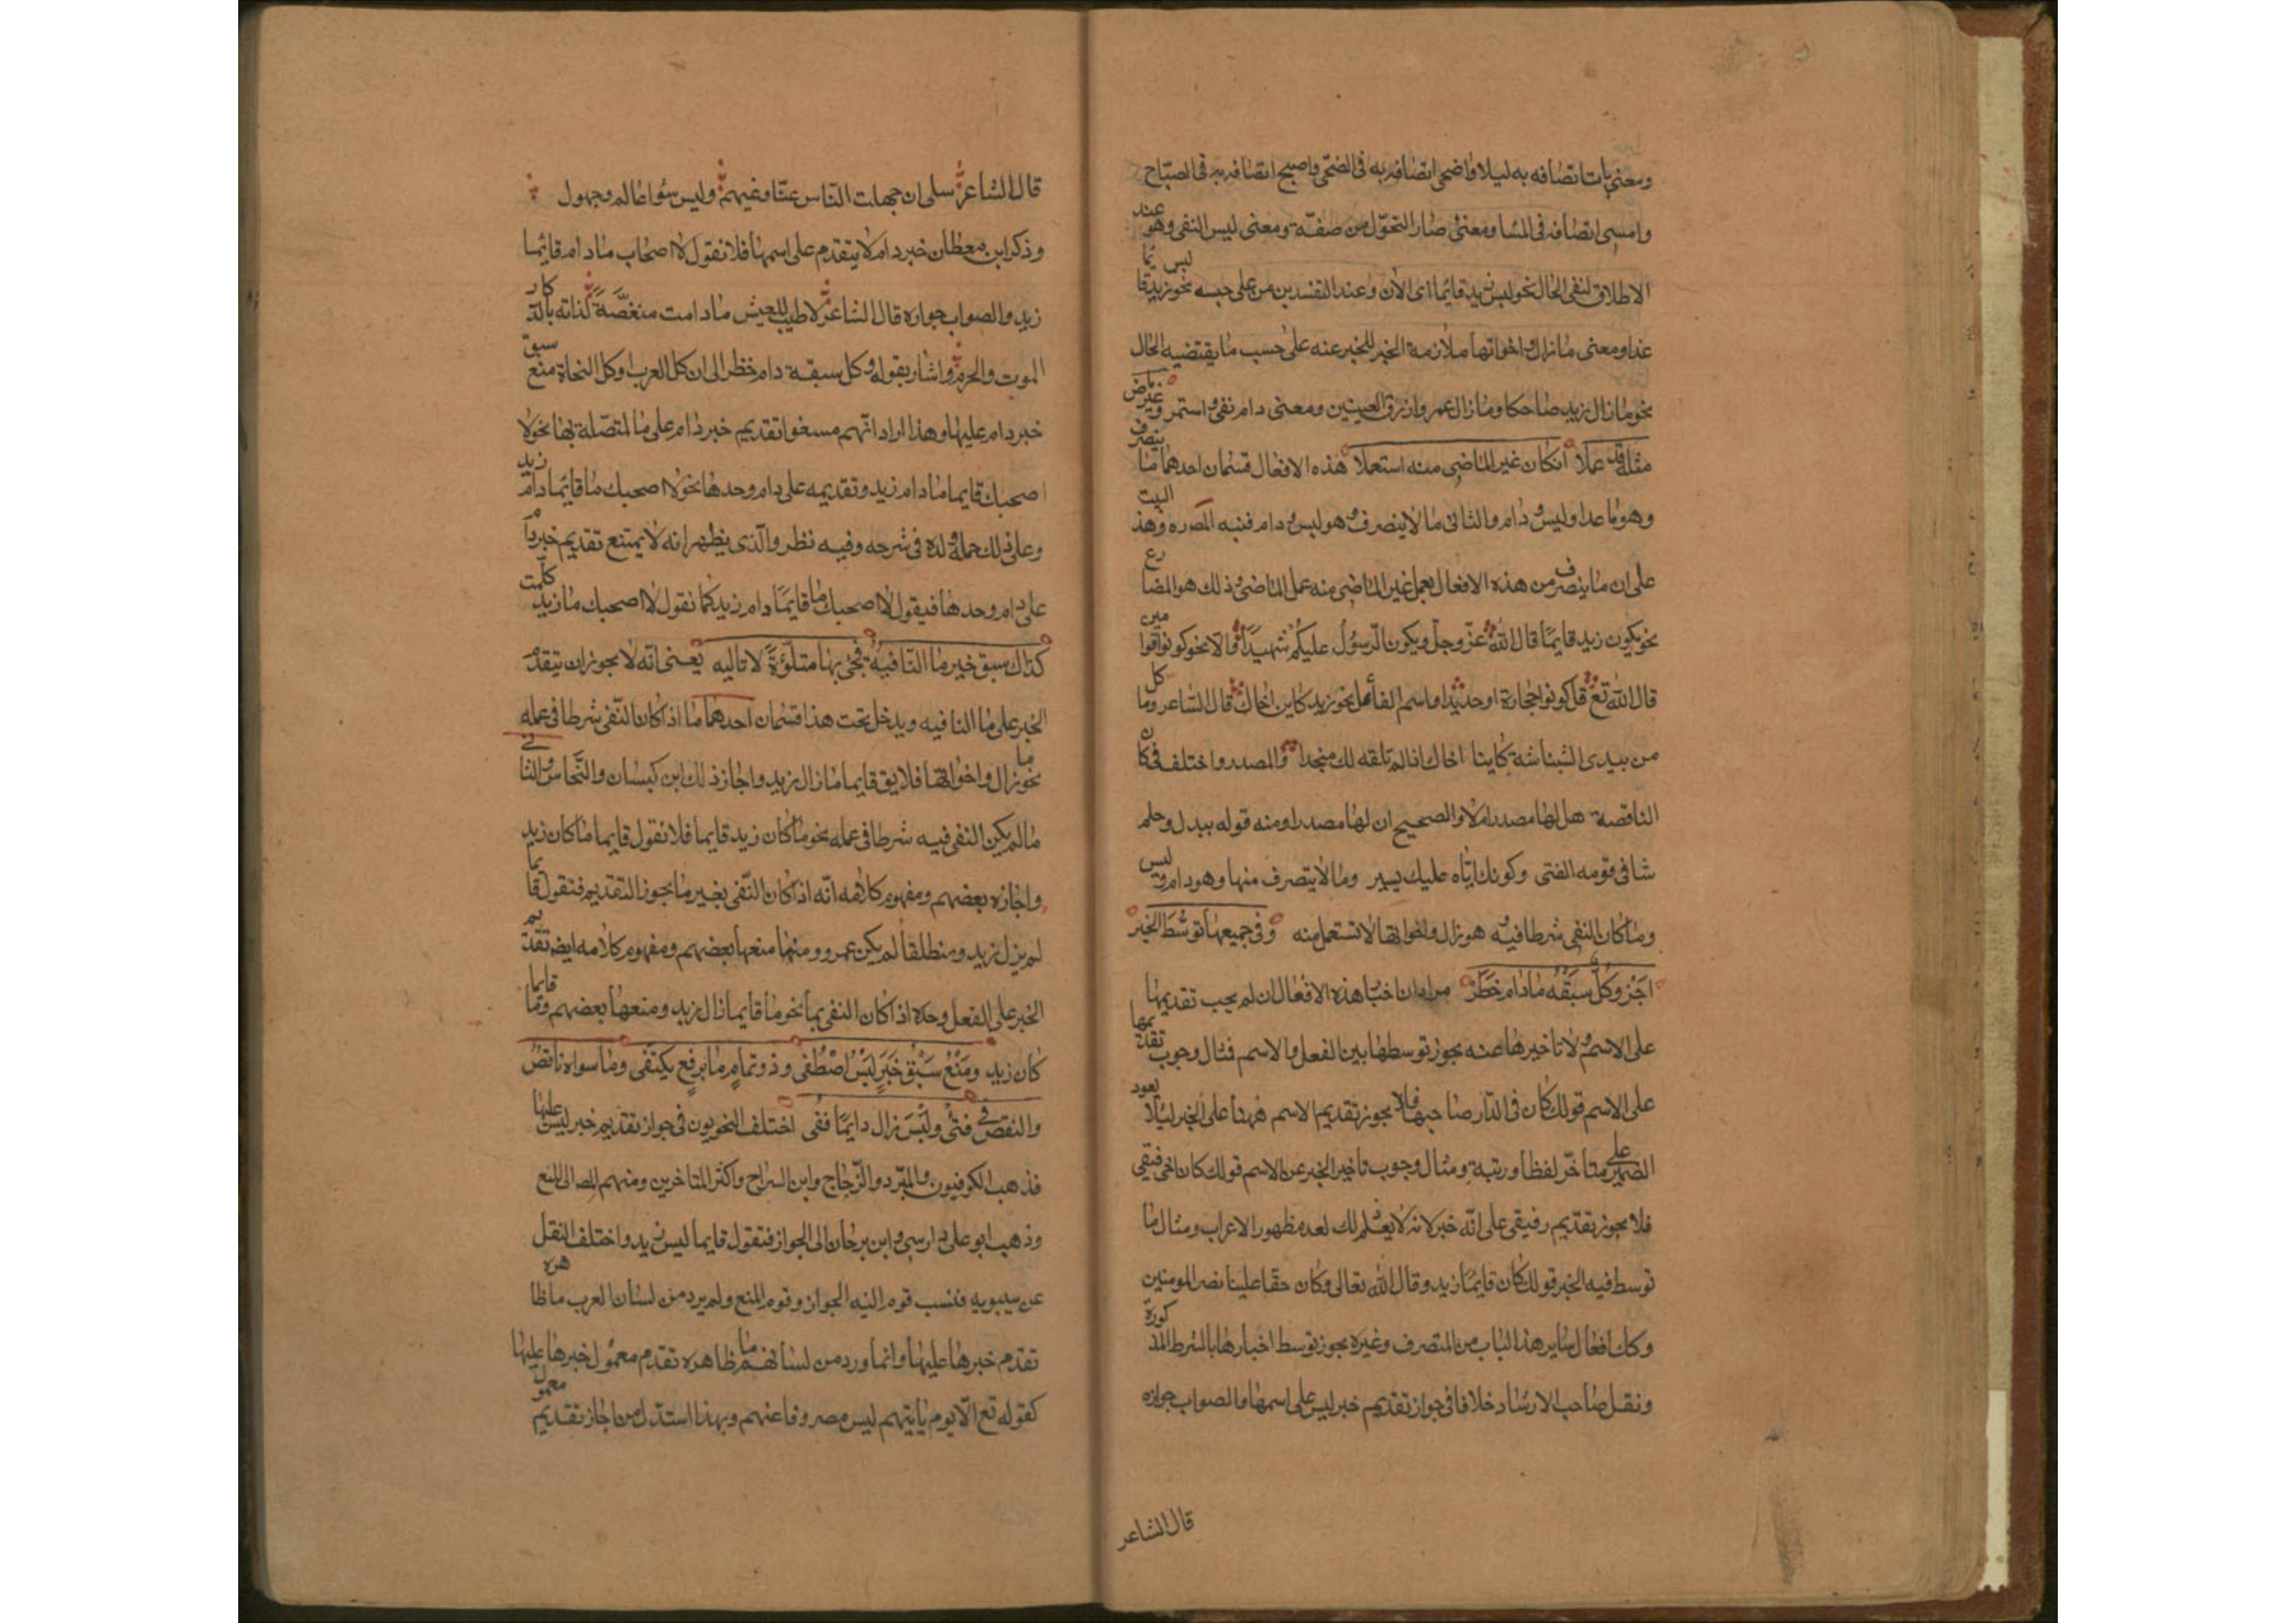 ومعنى بات اتصافه به ليلا واضحى اتصافه به فى الضحى واصبح اتصافه به فى الصباح
وامسى اتصافه فى المسا ومعنى صار التحول من صفة ومعنى ليس النفى وهو عند
الاطلاق لنفى الحال نحو ليس زيد قائما اى الآن وعند التقييد بزمن على حسبه نحو ليس زيد قائما
غدا ومعنى ما زال واخواتها ملازمة الخبر للمخبر عنه على حسب ما يقتضيه الحال
نحو ما زال زيد ضاحكا وما زال عمرو ازرق العينين ومعنى دام نفى واستمر وغير ماض
مثله قد عملا انكان غير الماضى منه استعملا هذه الافعال قسمان احدهما ما يتصرف
وهو ما عدا وليس ودام والثانى ما لا ينصرف وهو ليس ودام فنبه المص ره وهذا البيت
على ان ما يتصرف من هذه الافعال يعمل غير الماضى منه عمل الماضى وذلك هو المضارع
نحو يكون زيد قايما قال الله عز وجل ويكون الرسول عليكم شهيدا والامر نحو كونوا قوامين
قال الله تع قل كونوا حجارة او حديدا واسم الفاعل نحو زيد كاين اخاك قال الشاعر وما كل
من يبدى البشاشة كاينا اخاك اذا لم تلقه لك منجدا والمصدر واختلف فى كان
الناقصة هل لها مصدر ام لا والصحيح ان لها مصدرا ومنه قوله ببذل وحلم
شا فى قومه الفتى وكونك اياه عليك يسير وما لا يتصرف منها وهو دام وليس
وما كان النفى شرطا فيه هو زال واخواتها لا تستعمل منه وفى جميعها توسط الخبر
اجز وكل سبقه ما دام حظر مراده ان اخبار هذه الافعال ان لم يجب تقديمها
على الاسم ولا تاخيرها عنه يجوز توسطها بين الفعل والاسم فمثال وجوب تقديمها
على الاسم قولك كان فى الدار صاحبها فلا يجوز تقديم الاسم ههنا على الخبر ليلا يعود
الضمير على متاخر لفظا ورتبة ومثال وجوب تاخير الخبر عن الاسم قولك كان اخى رفيقى
فلا يجوز تقديم رفيقى على انه خبر لانه لا يعلم ذلك لعدم ظهور الاعراب ومثال ما
توسط فيه الخبر قولك كان قايما زيد وقال الله تعالى وكان حقا علينا نصر المومنين
وكك افعال ساير هذا الباب من المتصرف وغيره يجوز توسط اخبارها بالشرط المذكورة
ونقل صاحب الارشاد خلافا فى جواز تقديم خبر ليس على اسمها والصواب جوازه
قال الشاعر
قال الشاعر سلى ان جهلت الناس عنا وعنهم وليس سواء عالم وجهول
وذكر ابن معطان خبر دام لا يتقدم على اسمها فلا نقول لا اصحاب ما دام قائما
زيد والصواب جوازه قال الشاعر لا طيب للعيش ما دامت منغصة لذاته بادكار
الموت والهرم واشار بقوله وكل سبقه دام حظر الى ان كل العرب او كل النحاة منع سبق
خبر دام عليها وهذا اراد انهم منعوا تقديم خبر دام على ما المتصلة بها نحو لا
اصحبك قايما ما دام زيد وتقديمه على دام وحدها نحو لا اصحبك ما قائما دام زيد
وعلى ذلك حمله ولده فى شرحه وفيه نظر والذى يظهر انه لا يمتنع تقديم خبر دام
على دام وحدها فيقول لا اصحبك ما قايما دام زيد كما نقول لا اصحبك ما زيدا كلمت
كذاك سبق خبر ما النافيه فجئ بها متلوة لا تاليه يعنى انه لا يجوز ان يتقدم
الخبر على ما النافيه ويدخل تحت هذا قسمان احدهما ما اذا كان النفى شرطا فى عمله
نحو ما زال واخواتها فلا يق قايما ما زال زيد واجاز ذلك ابن كيسان والنحاس والثانى
ما لم يكن النفى فيه شرطا فى عمله نحو ما كان زيد قايما فلا نقول قايما ما كان زيد
واجازه بعضهم ومفهوم كلامه انه اذا كان النفى بغير ما يجوز التقديم فنقول قايما
لم يزل زيد ومنطلقا لم يكن عمرو ومنها منعها بعضهم ومفهوم كلامه ايض تقديم
الخبر على الفعل وحده اذا كان النفى بما نحو ما قايما زال زيد ومنعها بعضهم وما قايما
كان زيد ومنع سبق خبر ليس اصطفى وذو تمام ما برفع يكتفى وما سواه ناقص
والنقص فى فتئ وليس زال دايما قفى اختلف النحويون فى جواز تقديم خبر ليس عليها
فذهب الكوفيون والمبرد والزجاج وابن السراج واكثر المتاخرين ومنهم المص الى المنع
وذهب ابو على دارسى وابن برهان الى الجواز فتقول قايما ليس زيد واختلف النقل
عن سيبويه فنسب قوم اليه الجواز وقوم المنع ولم يرد من لسان العرب ما ظاهره
تقدم خبرها عليها وانما ورد من لسانهم ما ظاهره تقدم معمول خبرها عليها
كقوله تع الا يوم ياتيهم ليس مصروفا عنهم وبهذا استدل من اجاز تقديم معمول